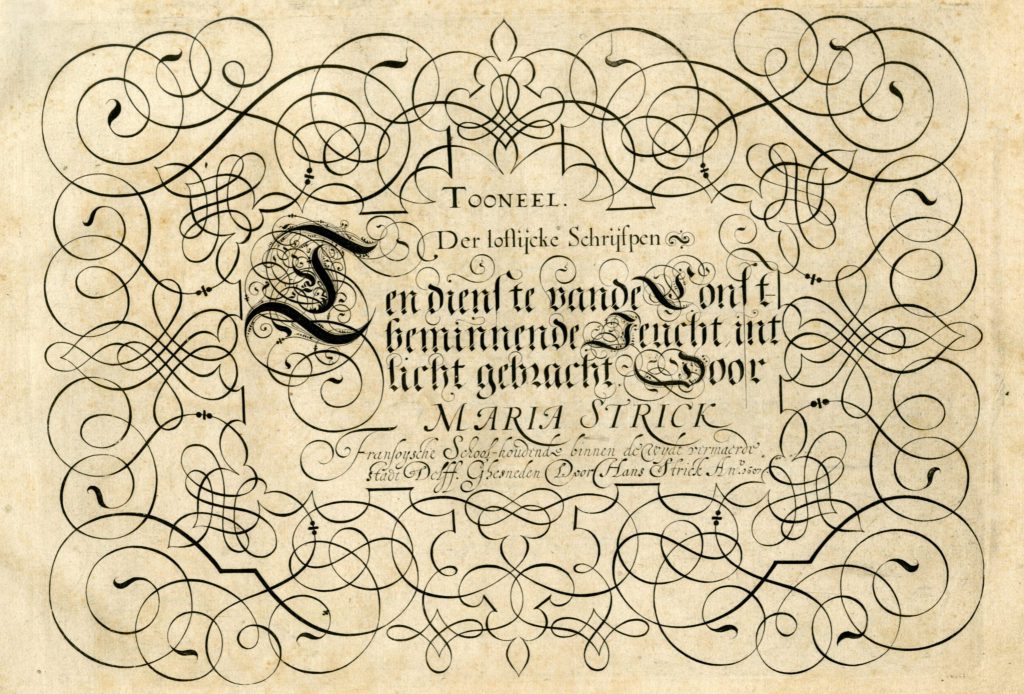 TOONEEL.
Der loflijcke Schrijfpen
Ten dienste vande Const
beminnende Jeucht int
licht gebracht. Door
MARIA STRICK
Fransoysche School-houdende binnen de wijdt vermaerde
stadt Delff. Ghesneden Door Hans Strick An.º 1607.